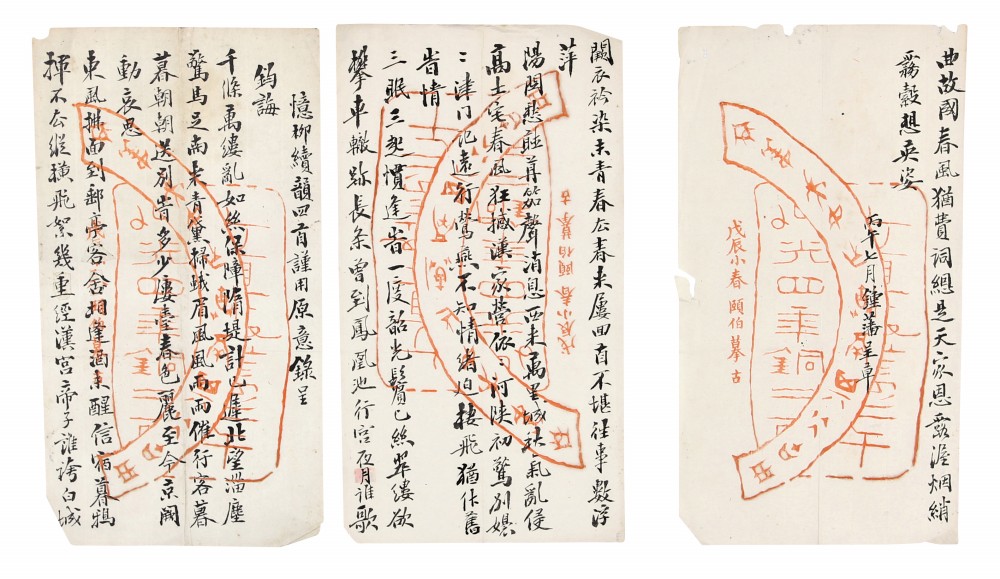 憶柳續韻四首謹用原意錄呈
鈞誨
千條萬縷亂如絲保障隋堤計已遲北望淄塵
驚馬足南來青黛掃蛾眉風風雨雨催行客暮
暮朝朝送別時多少樓臺春色麗至今京闕
動哀思
東風拂面到郵亭客舍相逢酒未醒信宿暮鴉
揮不去縱橫飛絮幾重經漢宮帝子誰誇白城
闕衣衿染未青春去春來屢回首不堪往事數浮
萍
陽關愁聽再笳聲消息西來萬里城袄氣亂侵
高士宅春風狂撼漢家營依〻河陝初驚別嫋
〻津門記遠行鶯燕不知情緒怕棲飛猶作舊
時情
三眠三起慣逢時一度韶光鬢已絲縷欲
攀車轍跡長條曾到鳳凰池行宮夜月誰歌
戊辰小春頤伯摹古
曲故國春風猶費詞總是天家恩露澹烟綃
霧縠想英姿
丙午七月鍾藩呈草
光四年銅
戊辰小春頤伯摹古